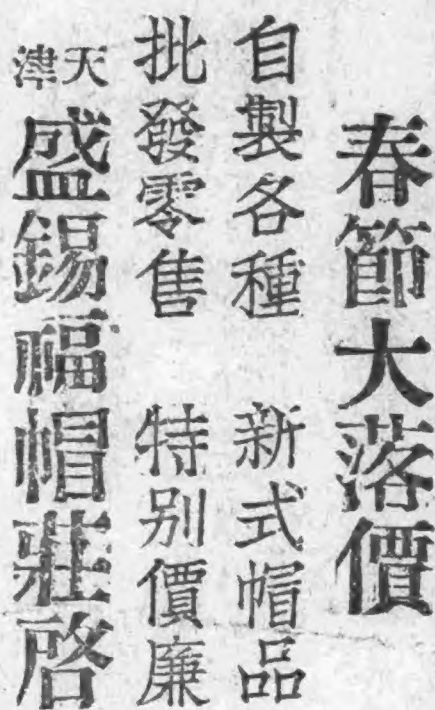 春節大落價
自製各種 新式帽品
批發零售 特别價廉
天津
盛錫福帽莊啓